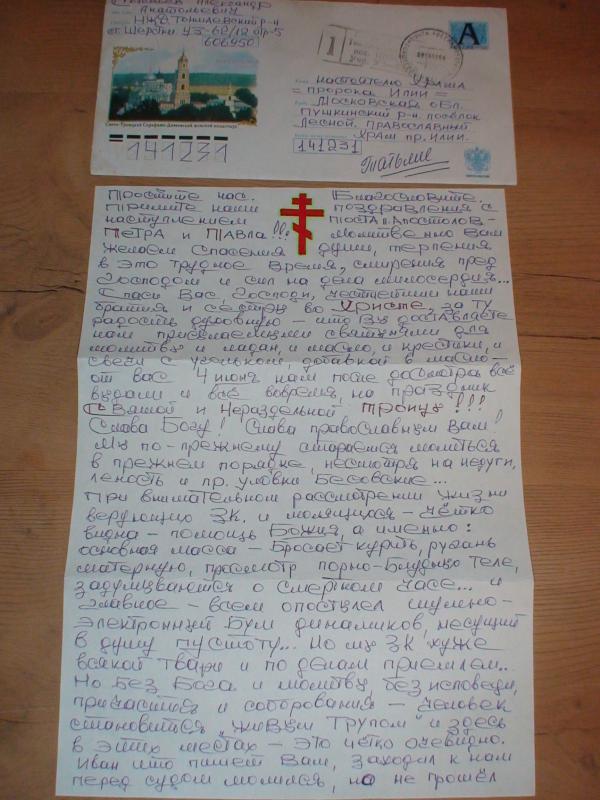 Александр
Анатольевич
НЖЕ Тоншаевский р-н
п. Шерстки УЗ-62/12 отр-5
606950
А
Настоятелю храма
пророка Илии
Московская обл.
Пушкинский р-н. посёлок
Лесной. Православный
храм пр. Илии.
141231
141231
Татьяне
Свято-Троицкий Серафимо-Дивеевский женский монастырь
Простите нас. Благословите.
Примите наши поздравления с
наступлением поста п. Апостолов –
Петра и Павла!!! Молитвенно Вам
желаем спасения души, терпения
в это трудное время, смирения пред
Господом и сил на дела милосердия...
Спаси Вас, Господи, честнейшии наши
братия и сёстры во Христе за ту
радость духовную – что Вы доставляете
нам присылаемыми святынями для
молитвы и ладан, и масло, и крестики, и
свечи с угольком, добавкой в масло –
от вас 4 июня нам после досмотра всё
выдали и всё вовремя, на праздник
Святой и Нераздельной Троицы!!!
Слава Богу! Слава православным Вам!
Мы по-прежнему стараемся молиться
в прежнем порядке, несмотря на недуги,
леность и пр. уловки бесовские...
При внимательном рассмотрении жизни
верующих ЗК. и молящихся – чётко
видна – помощь Божия, а именно:
основная масса – бросает курить, ругань
матерную, просмотр порно-блудных теле,
задумываются о смертном часе... и
главное – всем опостылел шумно-
электронный бум динамиков, несущий
в душу пустоту... Но мы ЗК хуже
всякой твари и по делам приемлем..
Но без Бога и молитвы, без исповеди,
причастия и соборования – человек
становиться „живым трупом" и здесь
в этих местах – это чётко очевидно.
Иван что пишет Вам, заходил к нам
перед судом молился, но не прошёл